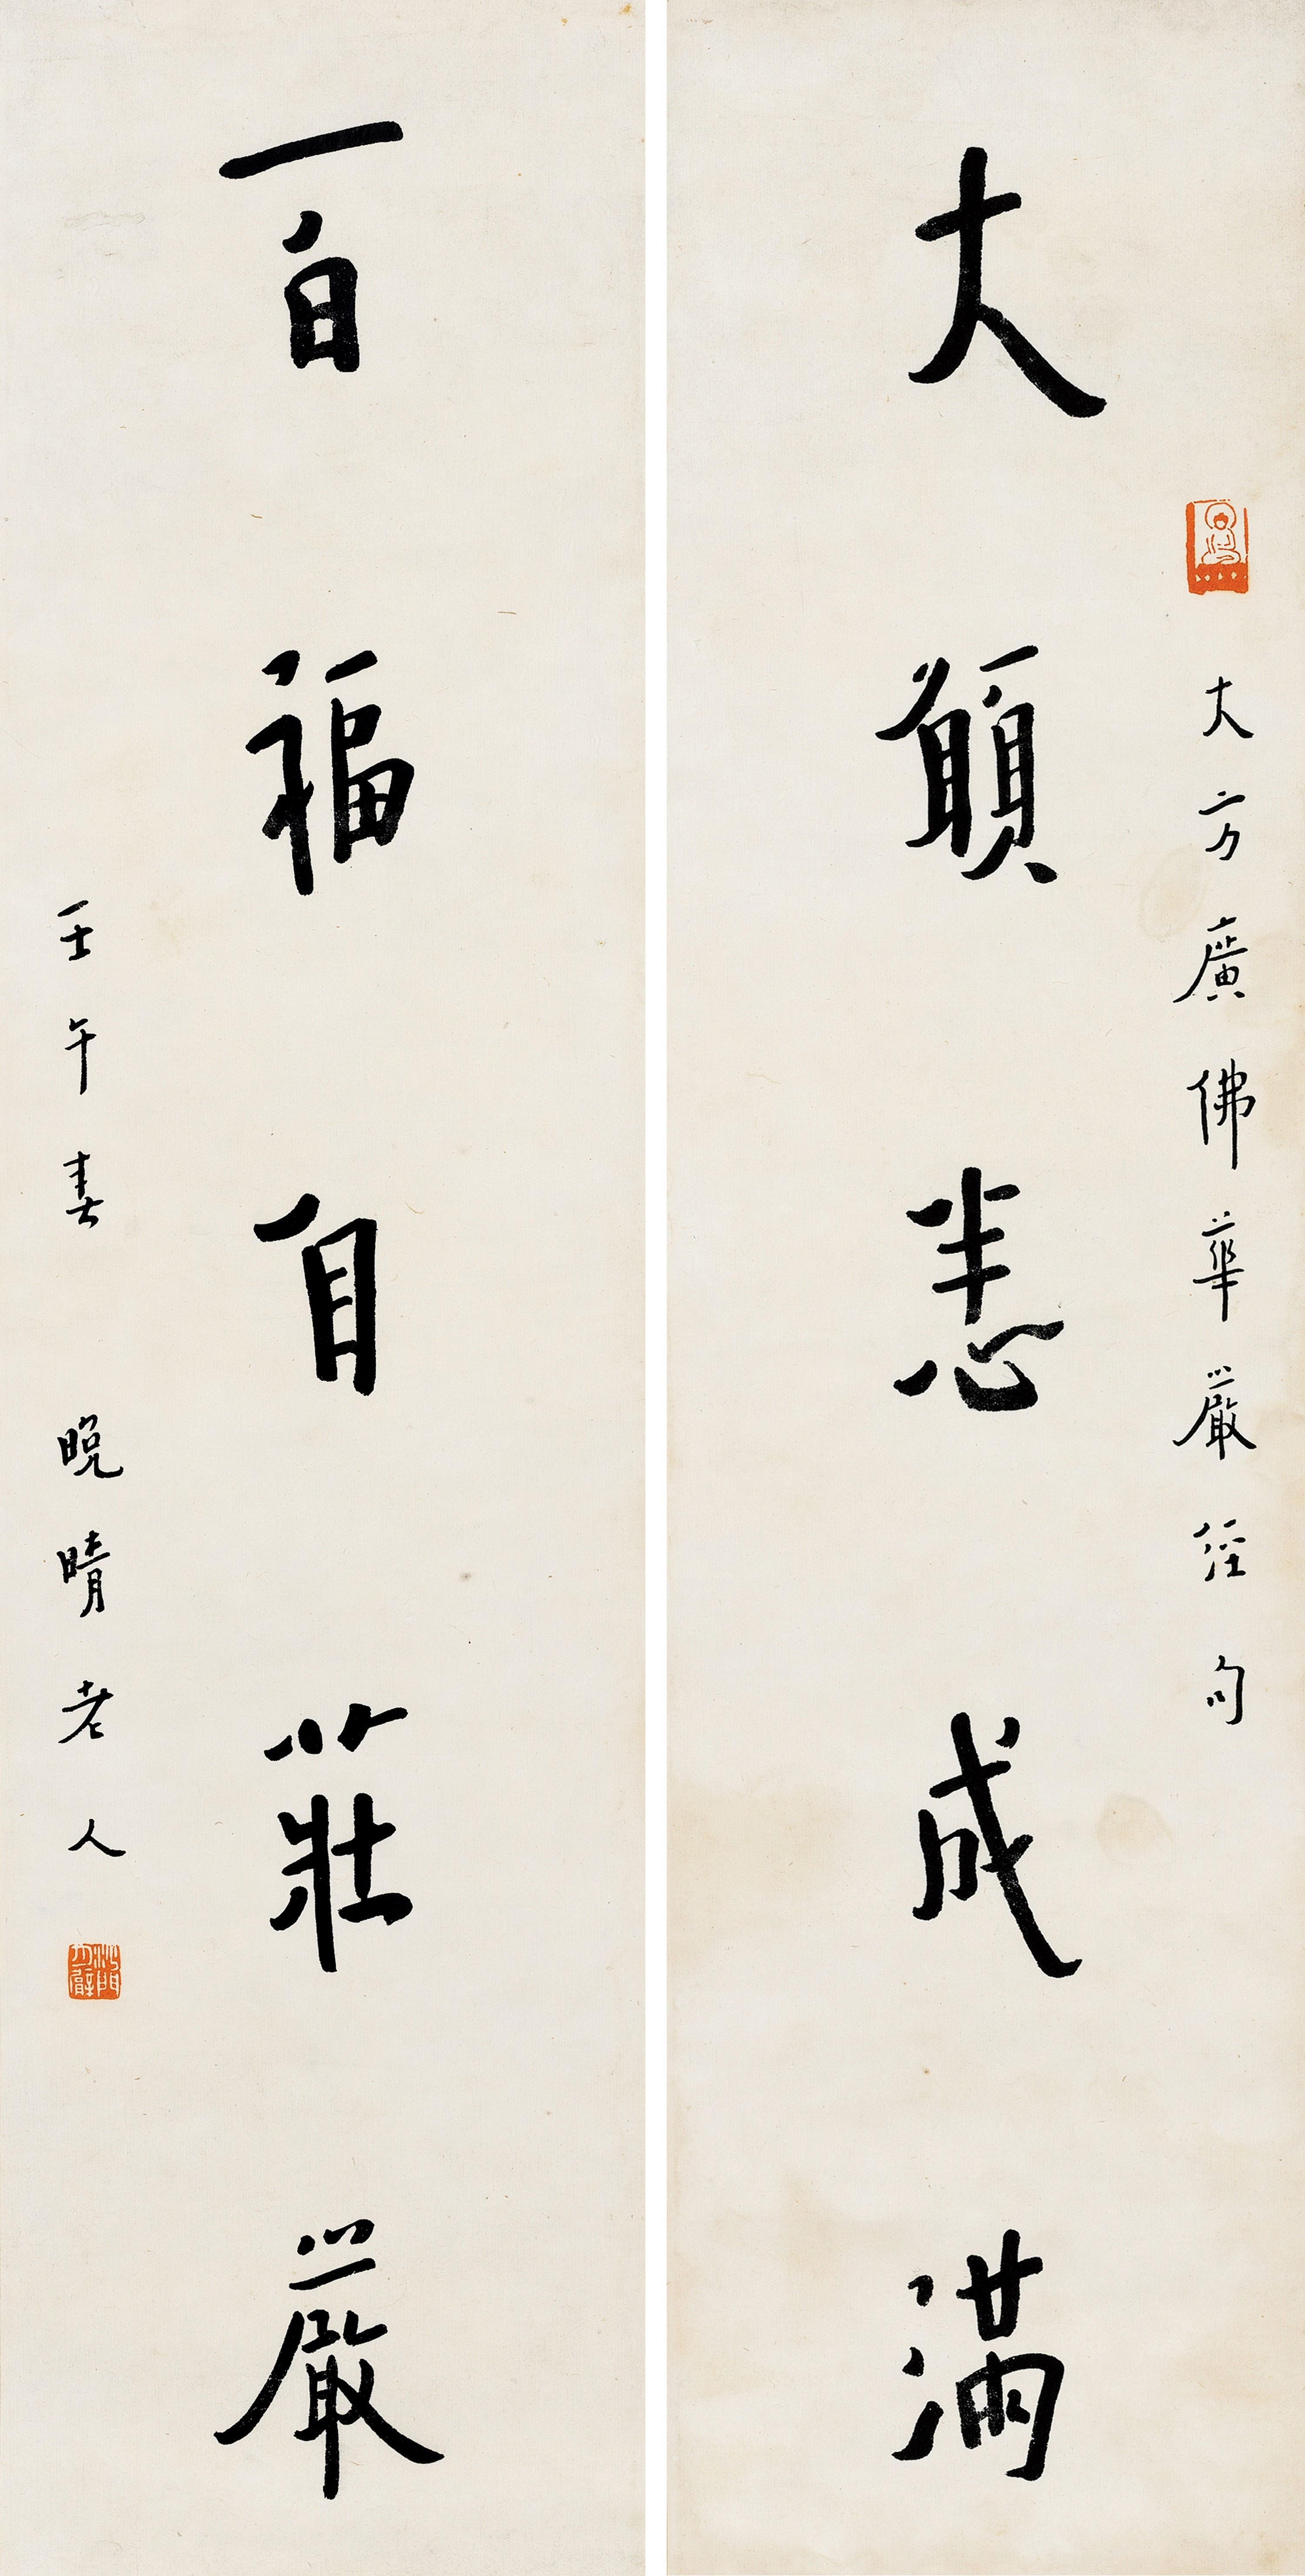 大願悉成滿
大方廣佛華嚴經句
百福自莊嚴
壬午春 晚晴老人